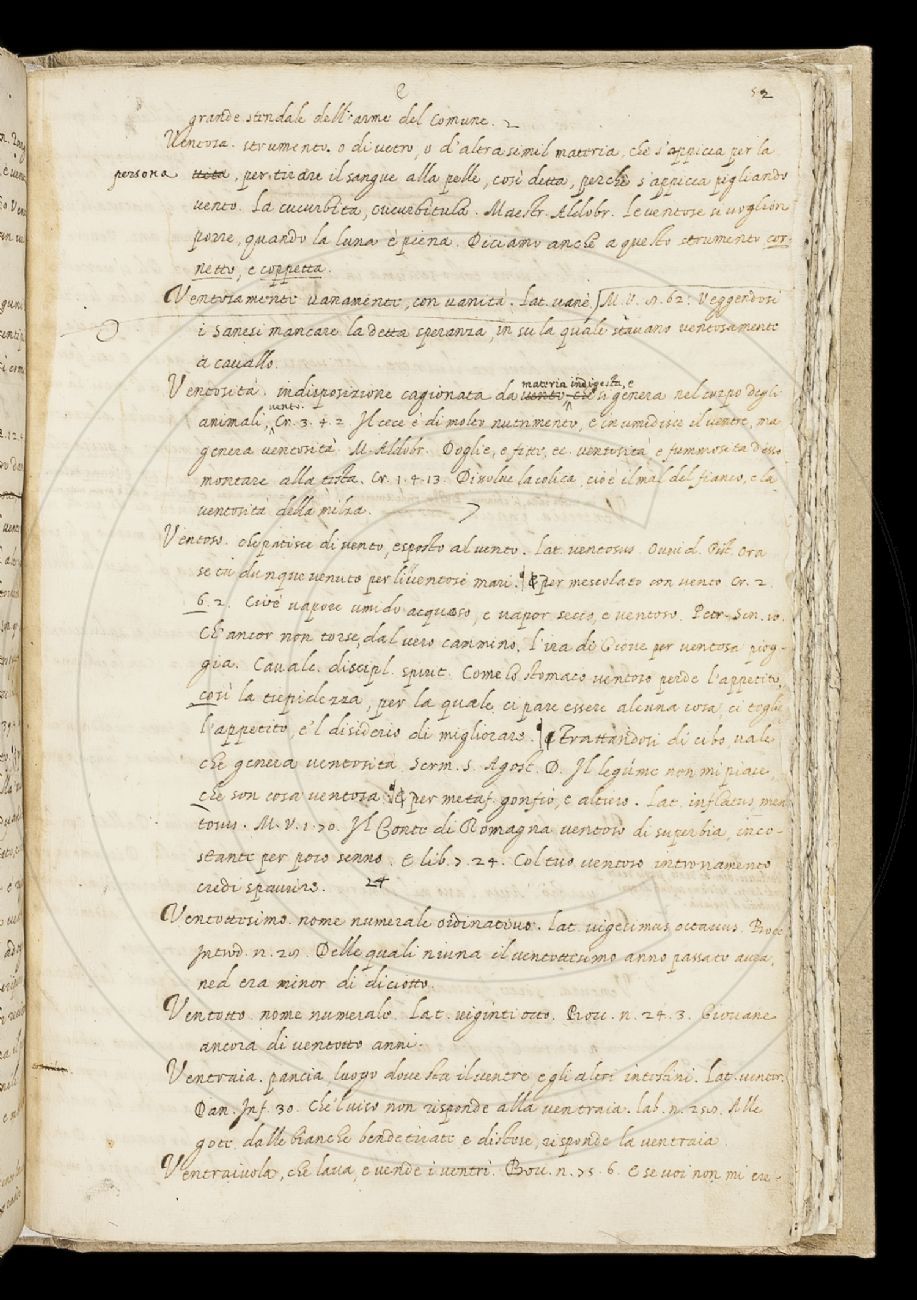 e 52
grande stendale dell'arme del Comune. 2
Ventosa. strumento. o di vetro, o d'altra simil materia, che s'appicca per la
persona testa, per tirare il sangue alla pelle, così detta, perchè s'appicca pigliando
vento. La cucurbita, cucurbitula. Maestr. Aldobr. Le ventose si voglion
porre, quando la luna è piena. Diciamo anche a questo strumento cor-
netto, e coppetta.
Ventosamente vanamente, con vanità. Lat. vanè, M. V. 9. 62. Veggendosi
i Sanesi mancare la detta speranza, in su la quale stavano ventosamente
a cavallo.
materia indigesta, e
Ventosità. indisposizione cagionata da vento che si genera nel corpo degli
vento.
animali, Cr. 3. 4. 2. Il cece è di molto nutrimento, e inumidisce il ventre, ma
genera ventosità. M. Aldobr. Doglie, e fitte, ec. ventosità e fummosità d'esso
montare alla testa. Cr. 1. 4. 13. Disolve la colica, cioè il mal del fianco, e la
ventosità della milza.
Ventoso. che patisce di vento, esposto al vento. Lat. ventosus. Ovvid. Pist. Ora
se tu dunque venuto per li ventosi mari. per mescolato con vento Cr. 2.
6. 2. Cioè vapore umido acquoso, e vapor secco, e ventoso. Petr. Son. 10.
Ch'ancor non torse dal vero cammino, l'ira di Giove per ventosa piog-
gia. Cavalc. discipl. spirit. Come lo stomaco ventoso perde l'appetito,
così la tiepidezza, per la quale ci pare essere alcuna cosa, ci toglie
l'appetito, e'l disiderio di migliorare. Trattandosi di cibo vale
che genera ventosità. Serm. S. Agost. D. Il legume non mi piace,
che son cosa ventosa per metaf. gonfio, e altiero. Lat. inflatus men
tosus. M. V. 1. 70. Il Conte di Romagna ventoso di superbia, inco-
stante per poco senno. E lib. 7. 24. Col tuo ventoso intronamento
credi spaurire. 24
Ventottesimo. nome numerale ordinativo. Lat. vigesimus octavus. Bocc.
Introd. n. 29. Delle quali niuna il ventottesimo anno passato avea,
ned era minor di diciotto.
Ventotto. nome numerale. Lat. viginti octo. Bocc. n. 24. 3. Giovane
ancora di ventotto anni.
Ventraia. pancia luogo dove sta il ventre e gli altri intestini. Lat. venter.
Dan. Inf. 30. Che'l viso non risponde alla ventraia. lab. n. 250. Alle
gote dalle bianche bende tirate e distese, risponde la ventraia.
Ventraiuola, che lava, e vende i ventri. Bocc. n. 75. 6. E se voi non mi cre-